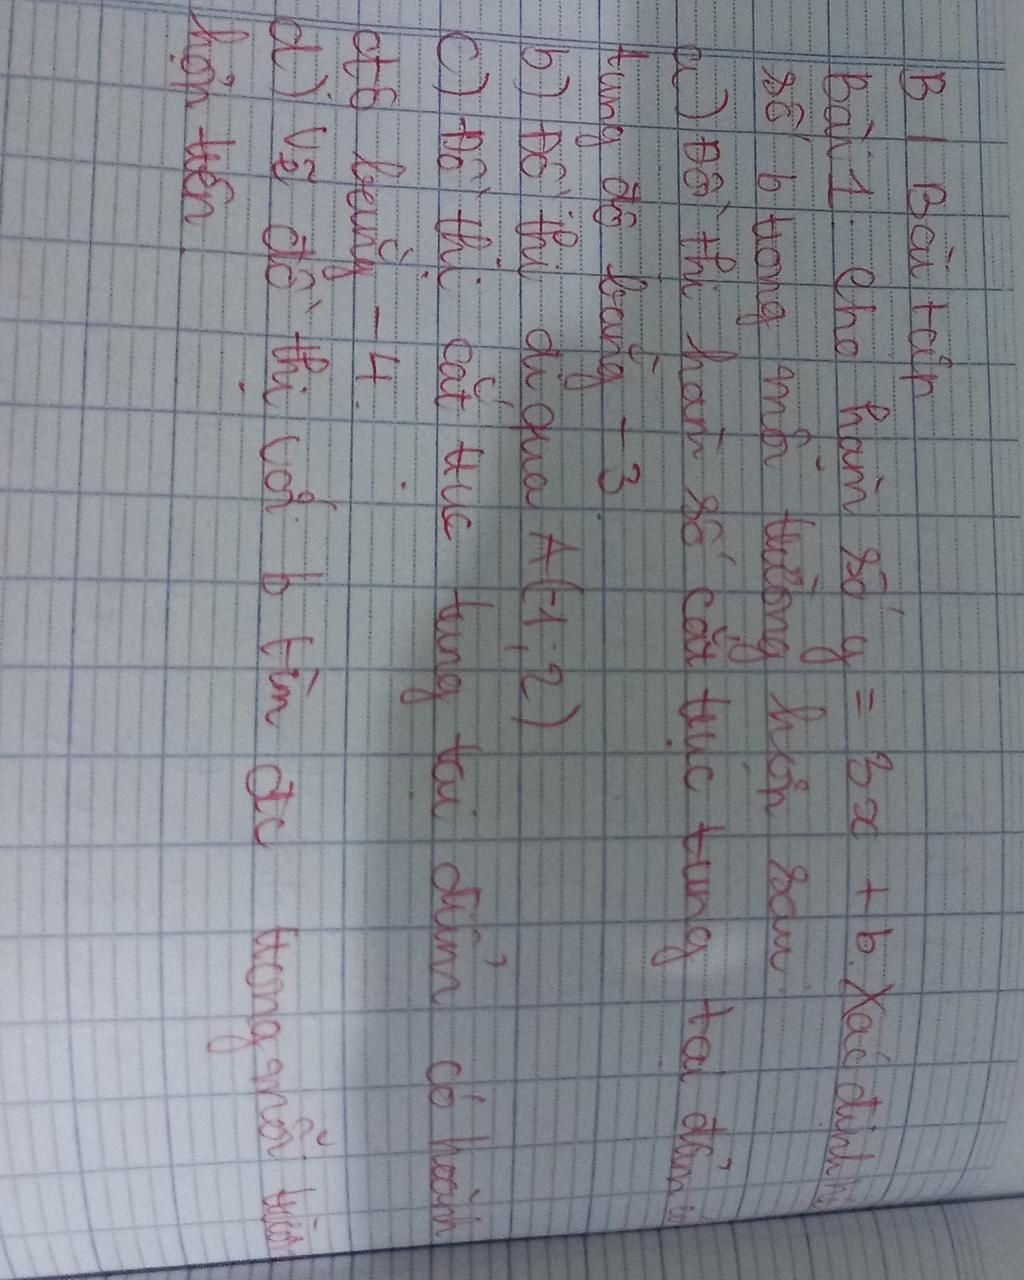 B / Bài tập
Bài 1. Cho hàm số y = 3x + b. Xác định
số b trong mỗi trường hợp sau
a) Đồ thị hàm số cắt trục tung tại điểm có
tung độ bằng - 3.
b) Đồ thị đi qua A(-1; 2)
c) Đồ thị cắt trục tung tại điểm có hoành
độ bằng - 4.
d) Vẽ đồ thị với b tìm đc trong mỗi trườn
hợp trên.